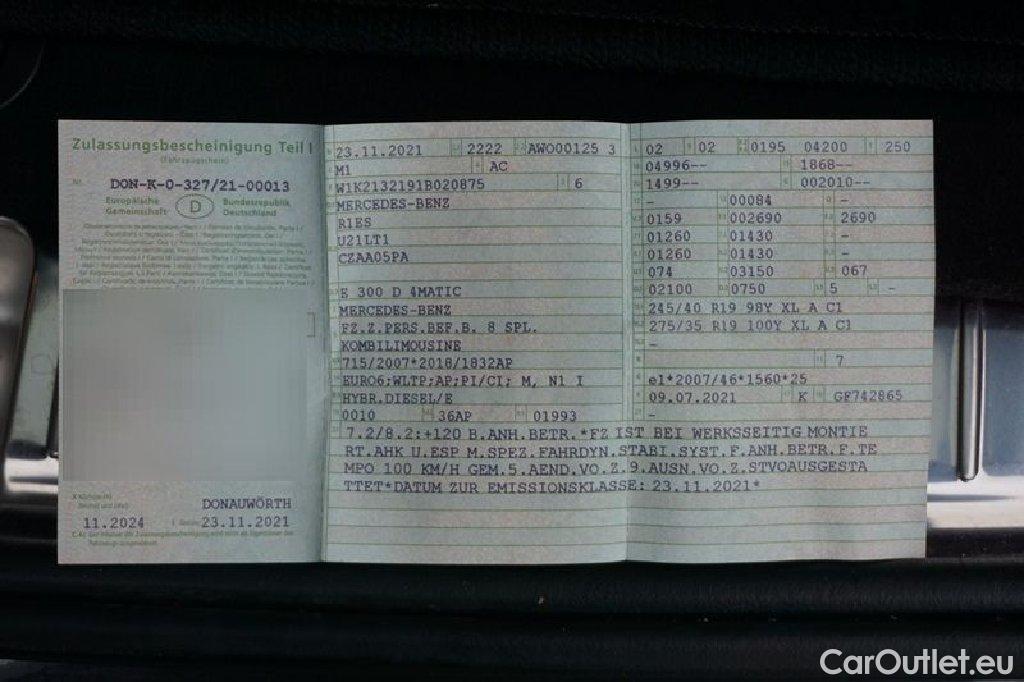 Zulassungsbescheinigung Teil I
(Fahrzeugschein)
Nr. DON-K-0-327/21-00013
Europäische Gemeinschaft
D
Bundesrepublik Deutschland
DONAUWÖRTH
11.2024
23.11.2021
23.11.2021 2222 AWO000125 3
M1 AC
W1K2132191B020875 6
MERCEDES-BENZ
R1ES
U21LT1
CZAA05PA
E 300 D 4MATIC
MERCEDES-BENZ
FZ.Z.PERS.BEF.B. 8 SPL.
KOMBILIMOUSINE
715/2007*2018/1832AP
EURO6;WLTP;AP;PI/CI; M, N1 I
HYBR.DIESEL/E
0010 36AP 01993
02 02 0195 04200 250
04996-- 1868--
1499-- 002010--
- 00084 -
0159 002690 2690
01260 01430 -
01260 01430 -
074 03150 067
02100 0750 5 -
245/40 R19 98Y XL A C1
275/35 R19 100Y XL A C1
-
7
e1*2007/46*1560*25
09.07.2021 K GF742865
-
7.2/8.2:+120 B.ANH.BETR.*FZ IST BEI WERKSSEITIG MONTIE
RT.AHK U.ESP M.SPEZ.FAHRDYN.STABI.SYST.F.ANH.BETR.F.TE
MPO 100 KM/H GEM.5.AEND.VO.Z.9.AUSN.VO.Z.STVOAUSGESTA
TTET*DATUM ZUR EMISSIONSKLASSE: 23.11.2021*
CarOutlet.eu